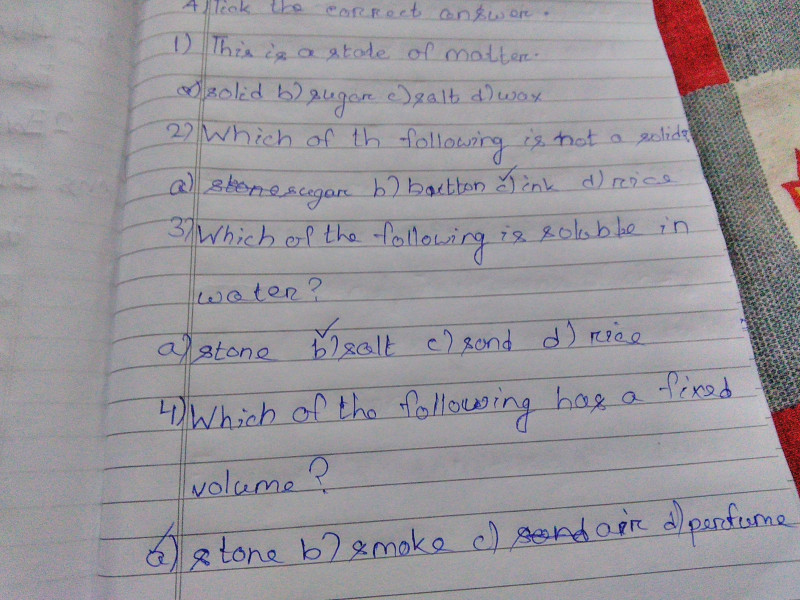 A) Tick the correct answer.
1) This is a state of matter.
a) solid b) sugar c) salt d) wax
2) Which of th following is not a solid?
a) stone sugar b) button c) ink d) rice
3) Which of the following is soluble in
water?
a) stone b) salt c) sand d) rice
4) Which of the following has a fixed
volume?
a) stone b) smoke c) sand air d) perfume